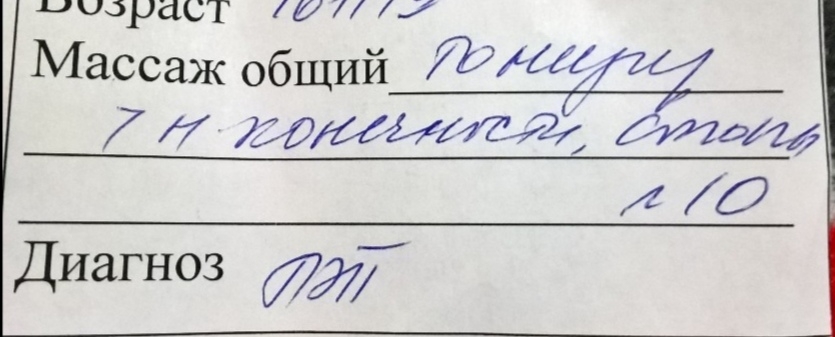 Возраст
Массаж общий тонизир
7 н конечности, стопы
№ 10
Диагноз ПЭП